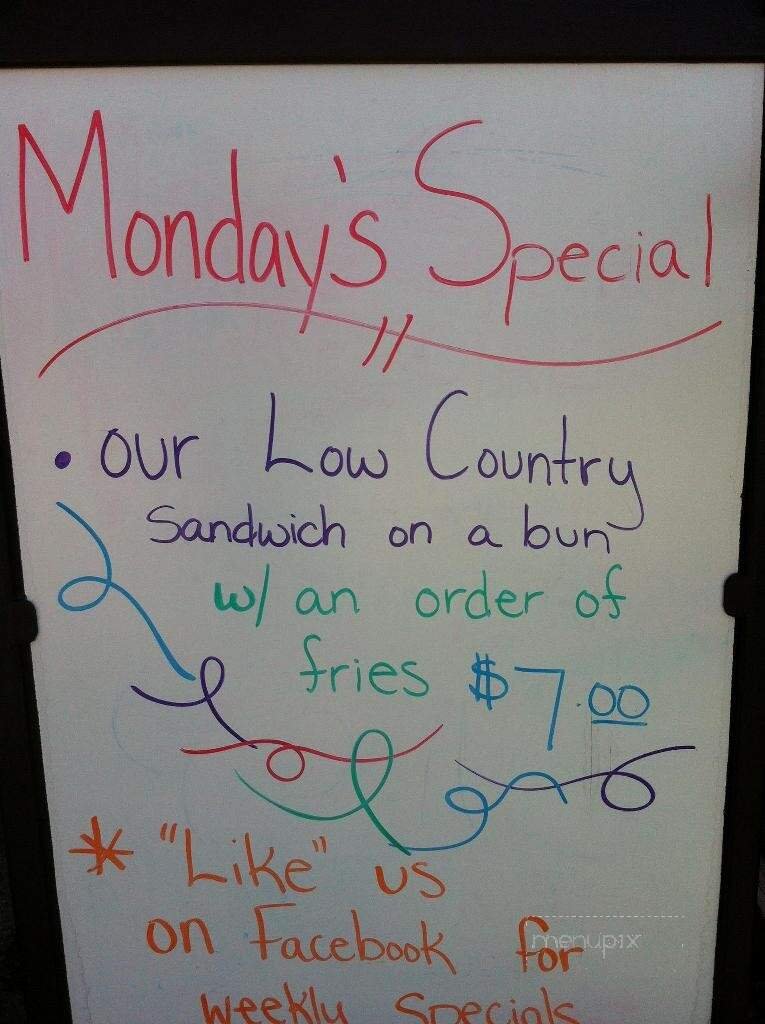 Monday's Special
• our Low Country
Sandwich on a bun
w/ an order of
fries $7.00
* "Like" us
on Facebook for
weekly Specials
menupix